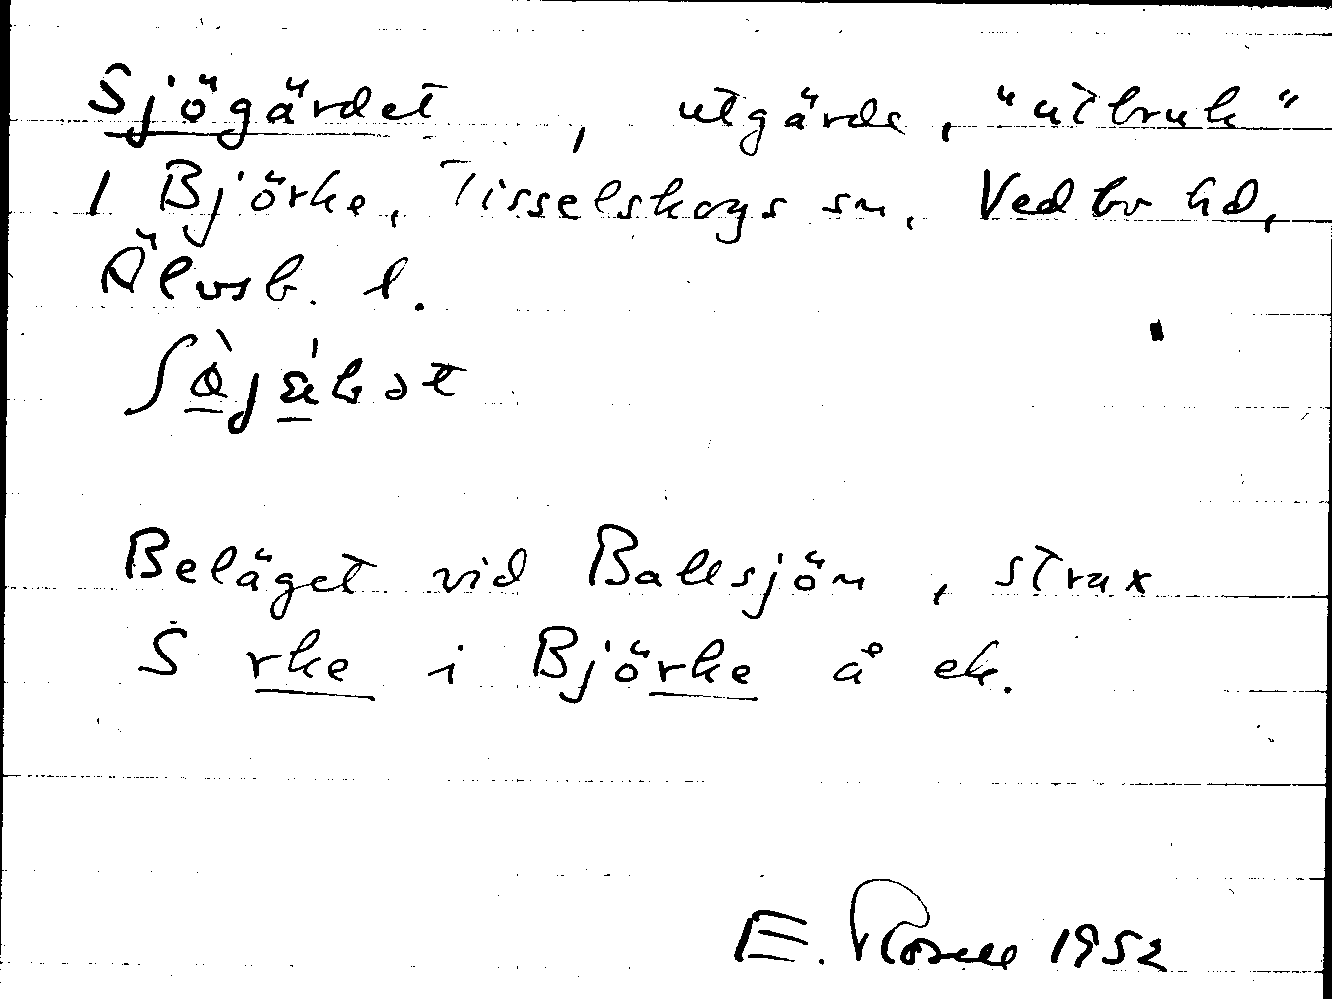 Sjögärdet, utgärde, "utbruk"
I Björke, Tisselskogs sn, Vedbo hd,
Älvsb. l.
Beläget vid Ballsjön, strax
S rke i Björke å ek.
E. Rosell 1952